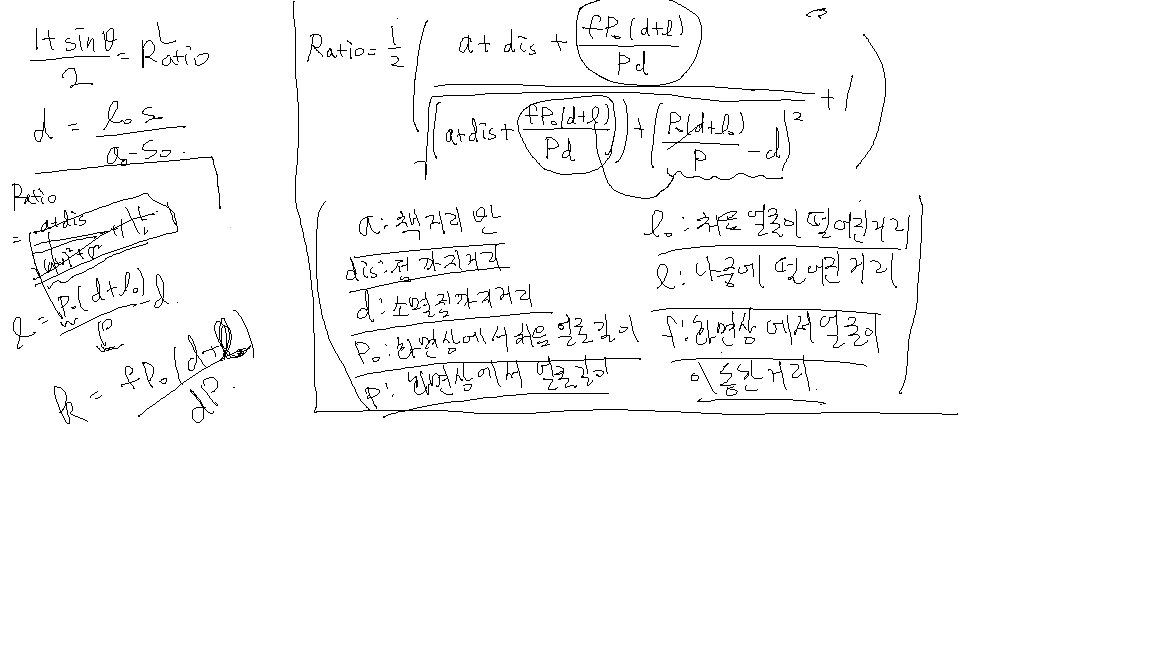 (1 + sin θ) / 2 = Ratio
d = l₀ S₀ / (a₀ - S₀)
Ratio
= a + dis
l = P₀(d + l₀) / P - d.
PR = fP₀(d + l) / dP.
Ratio = 1/2 ( (a + dis + fP₀(d+l) / Pd) / √((a + dis + fP₀(d+l) / Pd)) + (P₀(d+l₀) / P - d)² + 1 )
a: 책거리 반
dis: 점까지거리
d: 소멸점까지거리
P₀: 화면상에서 처음 얼굴길이
P: 화면상에서 얼굴길이
l₀: 처음 얼굴이 떨어진거리
l: 나중에 떨어진 거리
f: 화면상에서 얼굴이
이동한거리.